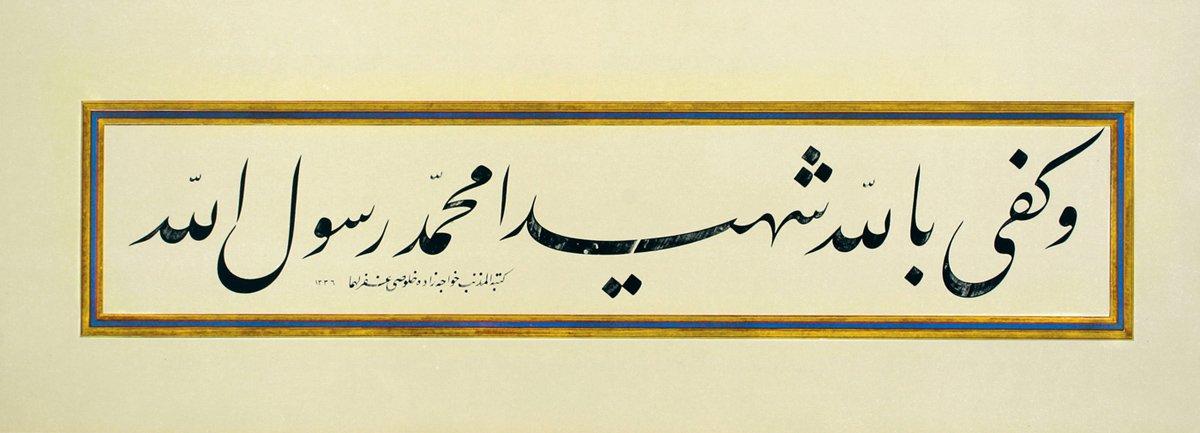 وكفى بالله شهيدا محمّد رسول الله
كتبه المذنب خواجه زاده خلوصى غفر لهما ١٣٣٦